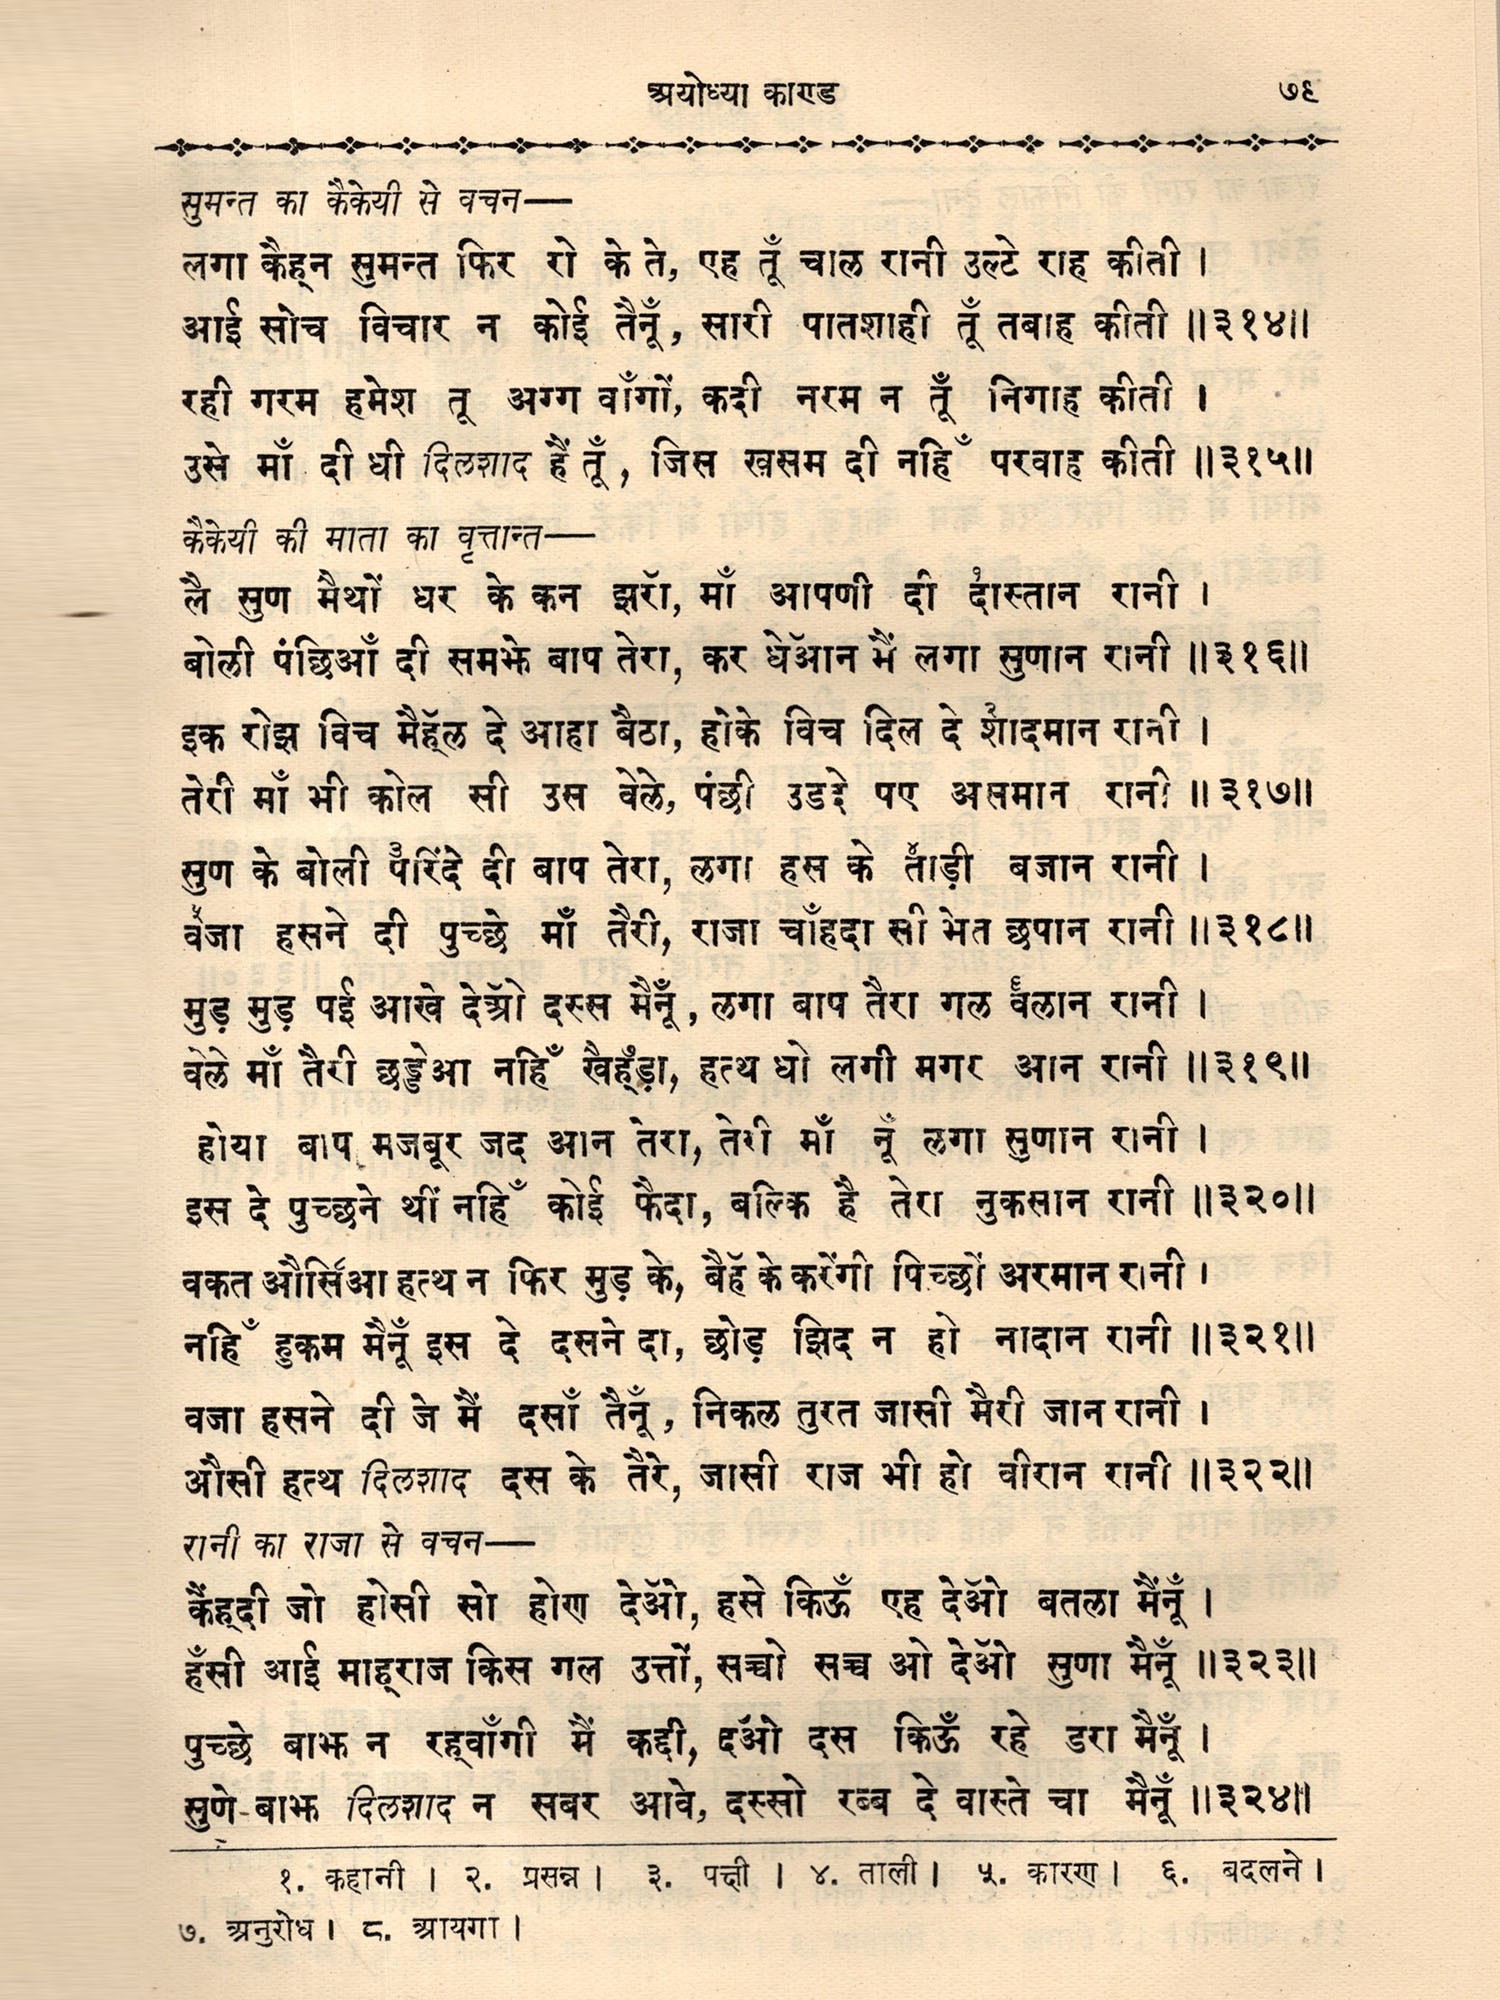 अयोध्या काण्ड ७९
सुमन्त का कैकेयी से वचन—
लगा कैह्न सुमन्त फिर रो के ते, एह तूँ चाल रानी उल्टे राह कीती ।
आई सोच विचार न कोई तैनूँ, सारी पातशाही तूँ तबाह कीती ॥३१४॥
रही गरम हमेश तू अग्ग वाँगों, कदी नरम न तूँ निगाह कीती ।
उसे माँ दी धी दिलशाद हैं तूँ, जिस खसम दी नहिँ परवाह कीती ॥३१५॥
कैकेयी की माता का वृत्तान्त—
लै सुण मैथों धर के कन झरॉ, माँ आपणी दी दास्तान१ रानी ।
बोली पंछिआँ दी समझे बाप तेरा, कर धेऑन मैं लगा सुणान रानी ॥३१६॥
इक रोझ विच मैहॅल दे आहा बैठा, होके विच दिल दे शादमान२ रानी ।
तेरी माँ भी कोल सी उस वेले, पंछी उडदे पए असमान रानी ॥३१७॥
सुण के बोली परिंदे३ दी बाप तेरा, लगा हस के ताड़ी४ बजान रानी ।
वजा५ हसने दी पुच्छे माँ तैरी, राजा चाँहदा सी भेत छपान रानी ॥३१८॥
मुड़ मुड़ पई आखे देऑो दस्स मैनूँ, लगा बाप तैरा गल वलान६ रानी ।
वेले माँ तैरी छड्डेआ नहिँ खैह्ँड़ा७, हत्थ धो लगी मगर आन रानी ॥३१९॥
होया बाप मजबूर जद आन तेरा, तेरी माँ नूँ लगा सुणान रानी ।
इस दे पुच्छने थीं नहिँ कोई फैदा, बल्कि है तेरा नुकसान रानी ॥३२०॥
वकत और्सिआ८ हत्थ न फिर मुड़ के, बैहॅ के करेंगी पिच्छों अरमान रानी ।
नहिँ हुकम मैनूँ इस दे दसने दा, छोड़ झिद न हो नादान रानी ॥३२१॥
वजा हसने दी जे मैं दसाँ तैनूँ, निकल तुरत जासी मैरी जान रानी ।
औसी हत्थ दिलशाद दस के तैरे, जासी राज भी हो वीरान रानी ॥३२२॥
रानी का राजा से वचन—
कैंह्दी जो होसी सो होण देऑो, हसे किऊँ एह देऑो बतला मैंनूँ ।
हँसी आई माह्राज किस गल उत्तों, सच्चो सच्च ओ देऑो सुणा मैनूँ ॥३२३॥
पुच्छे बाझ न रह्वाँगी मैं कद्दी, दऑो दस किऊँ रहे डरा मैनूँ ।
सुणे बाझ दिलशाद न सबर आवे, दस्सो रब्ब दे वास्ते चा मैनूँ ॥३२४॥
१. कहानी । २. प्रसन्न । ३. पक्षी । ४. ताली । ५. कारण । ६. बदलने ।
७. अनुरोध । ८. आयगा ।